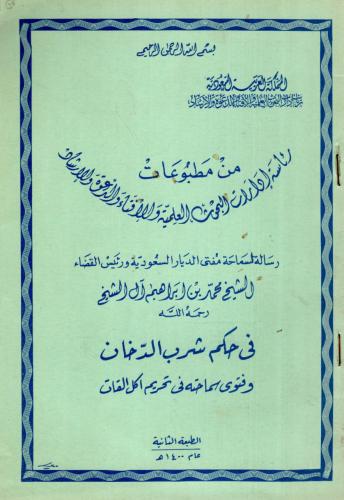 بسم الله الرحمن الرحيم
المملكة العربية السعودية
رئاسة إدارات البحوث العلمية والإفتاء والدعوة والإرشاد
من مطبوعات
رئاسة إدارات البحوث العلمية والإفتاء والدعوة والإرشاد
رسالة لسماحة مفتى الديار السعودية ورئيس القضاء
الشيخ محمد بن ابراهيم آل الشيخ
رحمه الله
فى حكم شرب الدخان
وفتوى سماحته فى تحريم أكل القات
الطبعة الثانية
عام ١٤٠٠ هـ